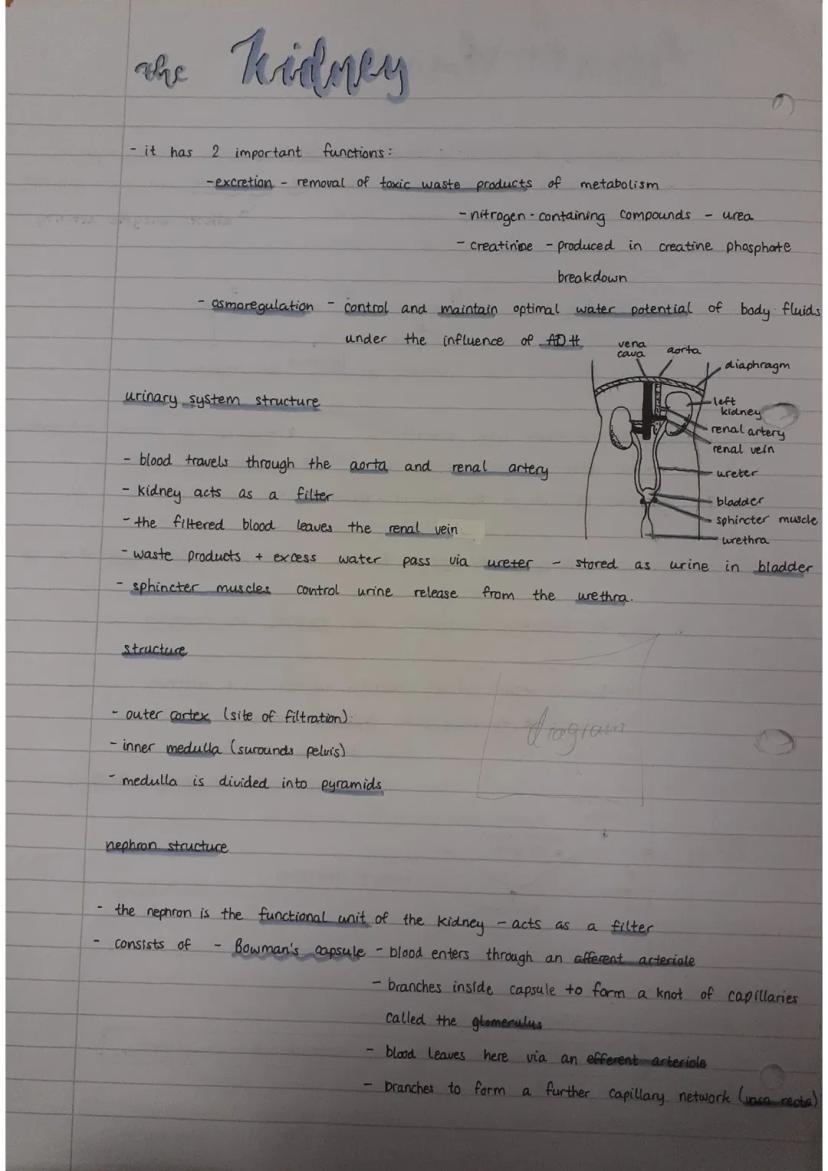 the Kidney
- it has 2 important functions:
- excretion - removal of toxic waste products of metabolism
- nitrogen-containing compounds - urea
- creatinine - produced in creatine phosphate
breakdown
- osmoregulation - control and maintain optimal water potential of body fluids
under the influence of ADH
vena
cava
aorta
diaphragm
left
kidney
renal artery
renal vein
ureter
bladder
sphincter muscle
urethra
urinary system structure
- blood travels through the aorta and renal artery
- kidney acts as a filter
- the filtered blood leaves the renal vein
- waste products + excess water pass via ureter - stored as urine in bladder
- sphincter muscles control urine release from the urethra.
structure
- outer cortex (site of filtration)
- inner medulla (surounds pelvis)
- medulla is divided into pyramids
diagram
nephron structure
- the nephron is the functional unit of the kidney - acts as a filter
- consists of - Bowman's capsule - blood enters through an afferent arteriole
- branches inside capsule to form a knot of capillaries
called the glomerulus
- blood leaves here via an efferent arteriole
- branches to form a further capillary network (vasa recta)